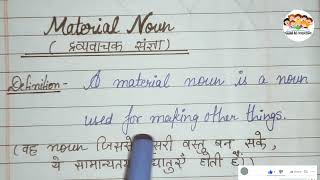 Material Noun
( द्रव्यवाचक संज्ञा )
Definition- A material noun is a noun
used for making other things.
(वह noun जिससे दूसरी वस्तु बन सके,
ये सामान्यतः धातुएँ होती हैं।)